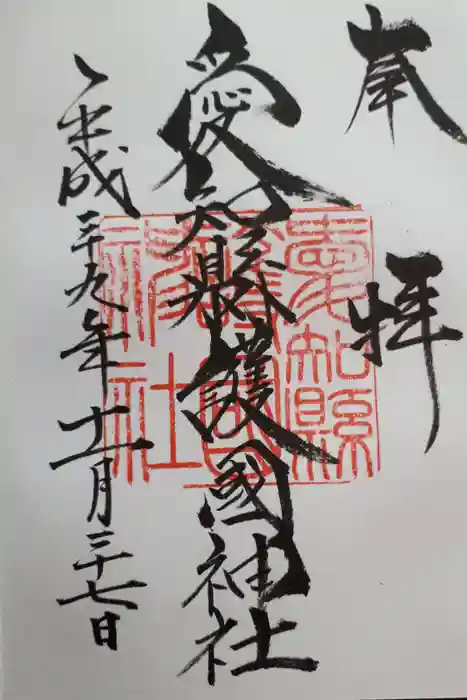 奉拝
愛知縣護國神社
平成二十九年十一月二十七日
愛知縣護國神社